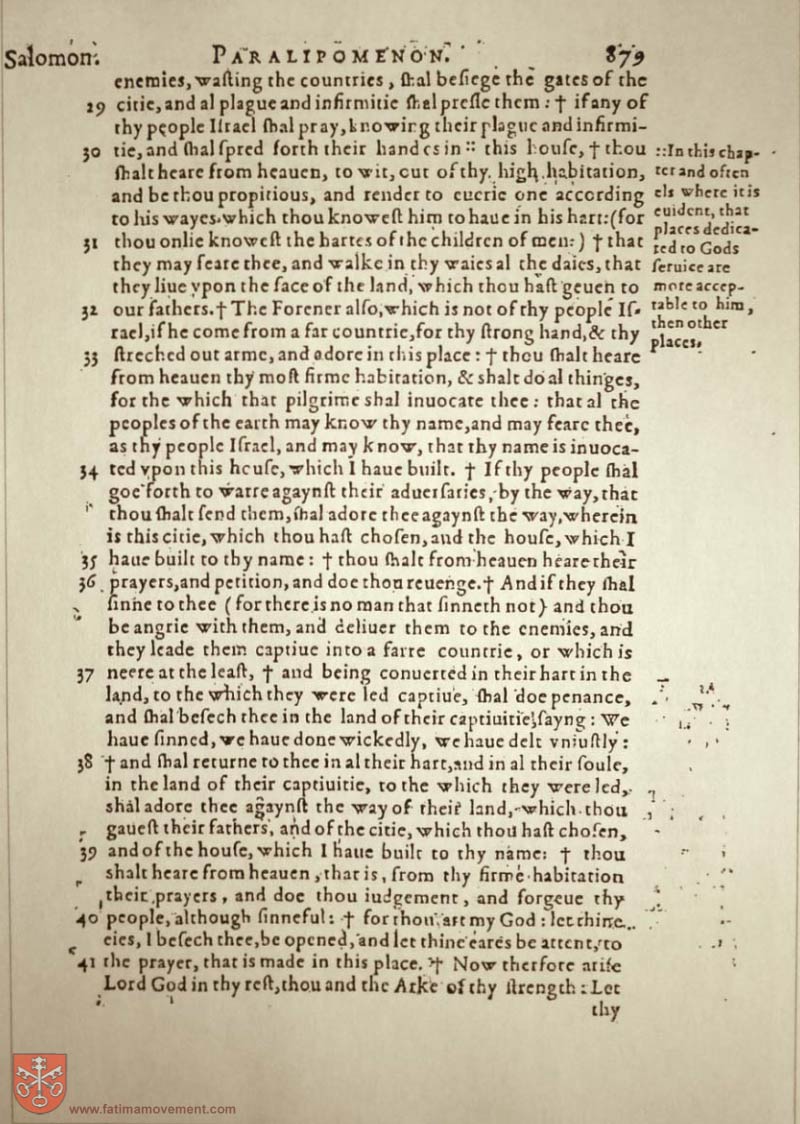 Salomon. PARALIPOMENON. 879
enemies, wasting the countries, shal besiege the gates of the
29 citie, and al plague and infirmitie shal presse them: † if any of
thy people Israel shal pray, knowing their plague and infirmi-
30 tie, and shal spred forth their handes in :: this house, † thou
shalt heare from heauen, to wit, out of thy high habitation,
and be thou propitious, and render to euerie one according
to his wayes, which thou knowest him to haue in his hart: (for
31 thou onlie knowest the hartes of the children of men:) † that
they may feare thee, and walke in thy waies al the daies, that
they liue vpon the face of the land, which thou hast geuen to
32 our fathers. † The Forener also, which is not of thy people Is-
rael, if he come from a far countrie, for thy strong hand, & thy
33 streched out arme, and adore in this place: † thou shalt heare
from heauen thy most firme habitation, & shalt do al thinges,
for the which that pilgrime shal inuocate thee: that al the
peoples of the earth may know thy name, and may feare thee,
as thy people Israel, and may know, that thy name is inuoca-
34 ted vpon this house, which I haue built. † If thy people shal
goe forth to warre agaynst their aduersaries, by the way, that
thou shalt send them, shal adore thee agaynst the way, wherein
is this citie, which thou hast chosen, and the house, which I
35 haue built to thy name: † thou shalt from heauen heare their
36 prayers, and petition, and doe thou reuenge. † And if they shal
sinne to thee (for there is no man that sinneth not) and thou
be angrie with them, and deliuer them to the enemies, and
they leade them captiue into a farre countrie, or which is
37 neere at the least, † and being conuerted in their hart in the
land, to the which they were led captiue, shal doe penance,
and shal besech thee in the land of their captiuitie, sayng: We
haue sinned, we haue done wickedly, we haue delt vniustly:
38 † and shal returne to thee in al their hart, and in al their soule,
in the land of their captiuitie, to the which they were led,
shal adore thee agaynst the way of their land, which thou
gauest their fathers, and of the citie, which thou hast chosen,
39 and of the house, which I haue built to thy name: † thou
shalt heare from heauen, that is, from thy firme habitation
their prayers, and doe thou iudgement, and forgeue thy
40 people, although sinneful: † for thou art my God: let thine
eies, I besech thee, be opened, and let thine eares be attent, to
41 the prayer, that is made in this place. † Now therfore arise
Lord God in thy rest, thou and the Arke of thy strength: Let
thy
:: In this chap-
ter and often
els where it is
euident, that
places dedica-
ted to Gods
seruice are
more accep-
table to him,
then other
places.
www.fatimamovement.com